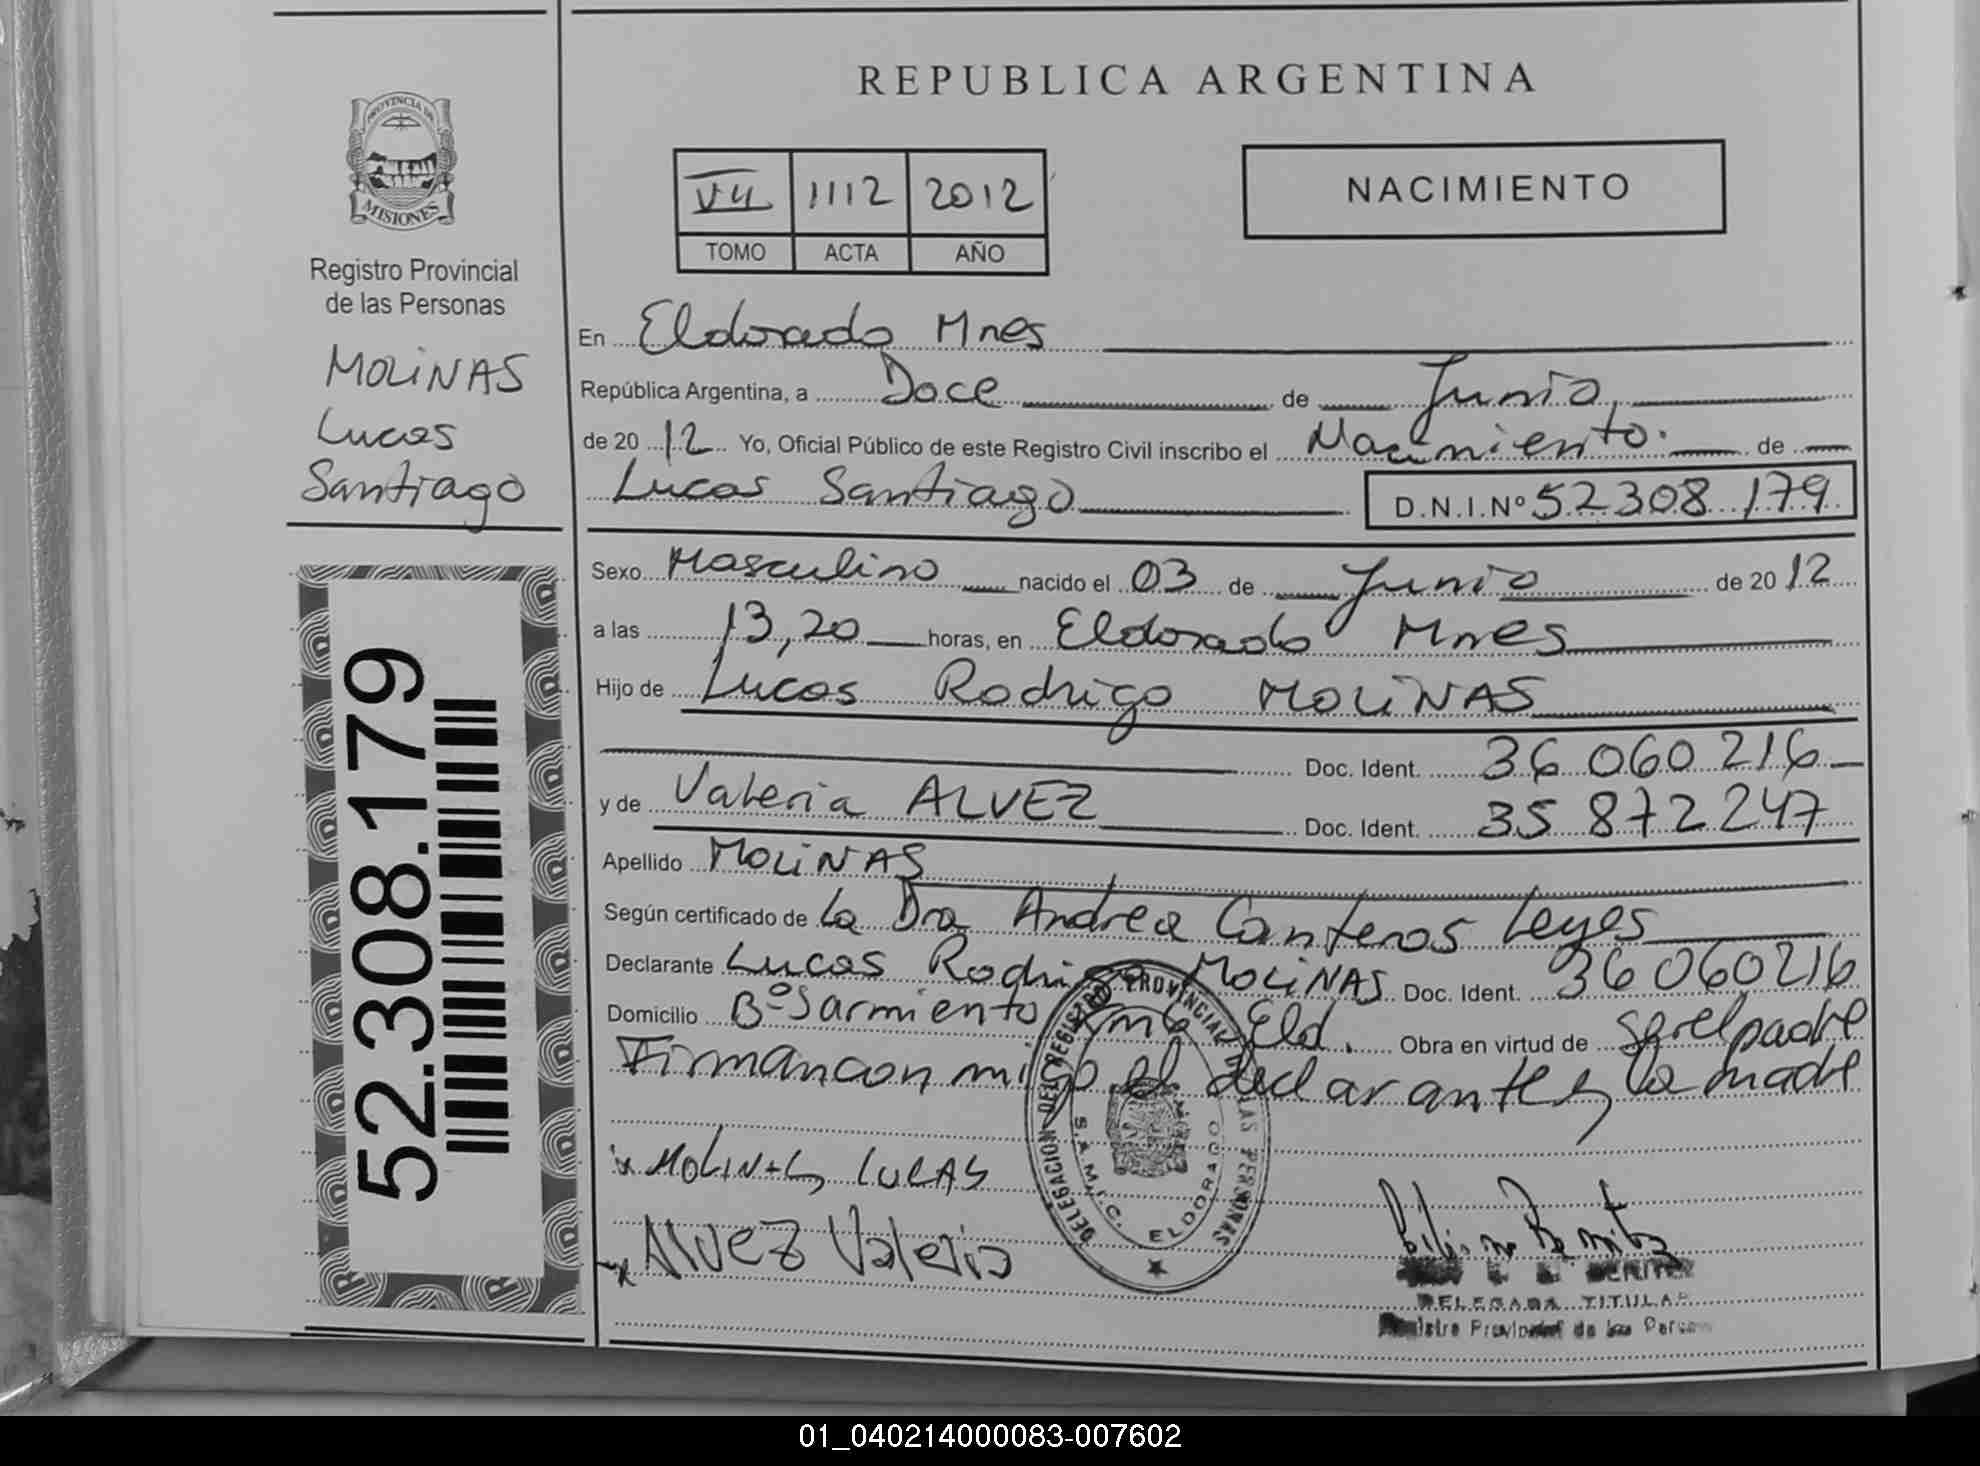 REPUBLICA ARGENTINA
PROVINCIA DE
MISIONES
Registro Provincial
de las Personas
MOLiNAS
Lucas
Santiago
52.308.179
VII 1112 2012
TOMO ACTA AÑO
NACIMIENTO
En Eldorado Mnes
República Argentina, a Doce de Junio
de 2012 Yo, Oficial Público de este Registro Civil inscribo el Nacimiento. de
Lucas Santiago D.N.I.Nº 52308179
Sexo Masculino nacido el 03 de Junio de 2012
a las 13,20 horas, en Eldorado Mnes
Hijo de Lucas Rodrigo MOLiNAS
Doc. Ident. 36 060 216
y de Valeria ALVEZ Doc. Ident. 35 872 247
Apellido MOLiNAS
Según certificado de La Dra Andrea Canteros Leyes
Declarante Lucas Rodrigo MOLiNAS Doc. Ident. 36 060216
Domicilio Bº Sarmiento Km 6 Eld. Obra en virtud de ser el padre
Firman conmigo el declarante y la madre
x MOLINAS LUCAS
x Alvez Valeria
DELEGACION DEL REGISTRO PROVINCIAL DE LAS PERSONAS
S.A.M.I.C. ELDORADO
BENITEZ
DELEGADA TITULAR
Registro Provincial de las Person
01_040214000083-007602